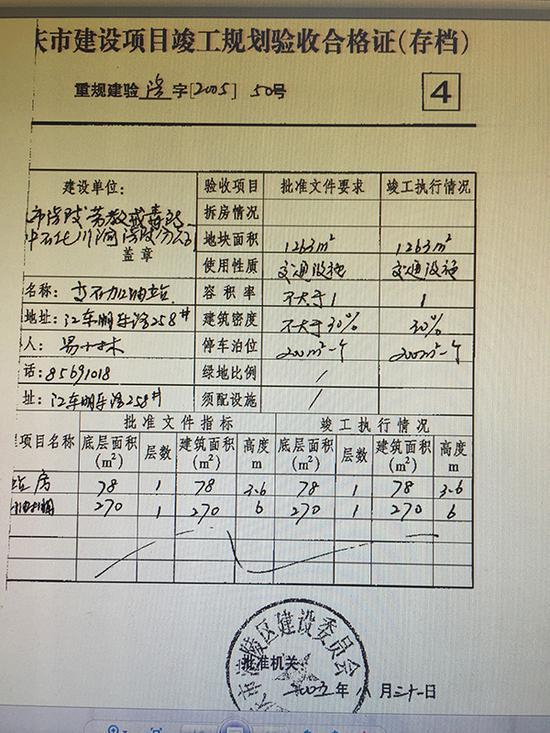 庆市建设项目竣工规划验收合格证(存档)
重规建验 涪 字[2005] 50号
4
建设单位: 验收项目 批准文件要求 竣工执行情况
市涪陵劳教戒毒所
中石化川渝涪陵分公司
盖章
拆房情况
地块面积 1263m² 1263m²
使用性质 交通设施 交通设施
名称: 加油站 容积率 不大于1 1
地址: 江东明东路258# 建筑密度 不大于30% 30%
人: 易 林 停车泊位 200m²一个 200m²一个
话: 85691018 绿地比例 /
址: 江东明东路258# 须配设施 /
批准文件指标 竣工执行情况
项目名称 底层面积(m²) 层数 建筑面积(m²) 高度m 底层面积(m²) 层数 建筑面积(m²) 高度m
站房 78 1 78 3.6 78 1 78 3.6
270 1 270 6 270 1 270 6
市涪陵区建设委员会
批准机关
2005年 八月三十一日